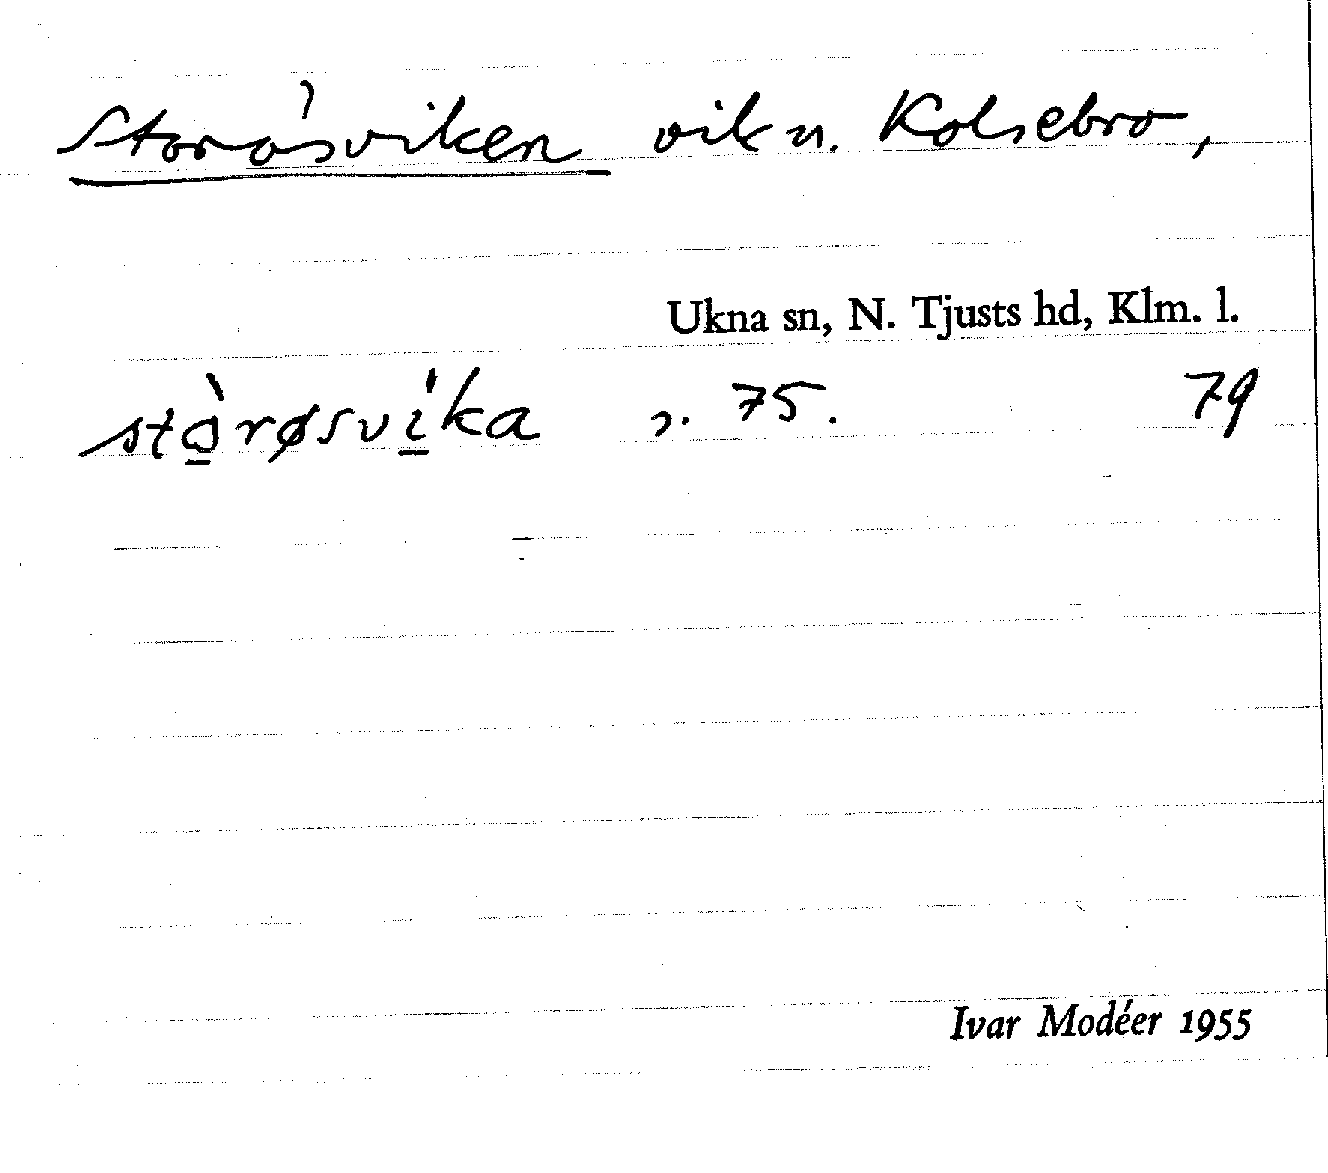 Storåsviken vik u. Kolsebro,
Ukna sn, N. Tjusts hd, Klm. l.
stò̱røsví̱ka s. 75. 79
Ivar Modéer 1955